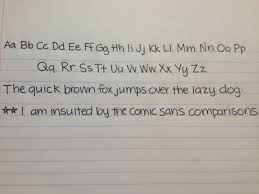 Aa Bb Cc Dd Ee Ff Gg Hh Ii Jj Kk Ll Mm Nn Oo Pp
Qq Rr Ss Tt Uu Vv Ww Xx Yy Zz
The quick brown fox jumps over the lazy dog.
** I am insulted by the comic sans comparisons